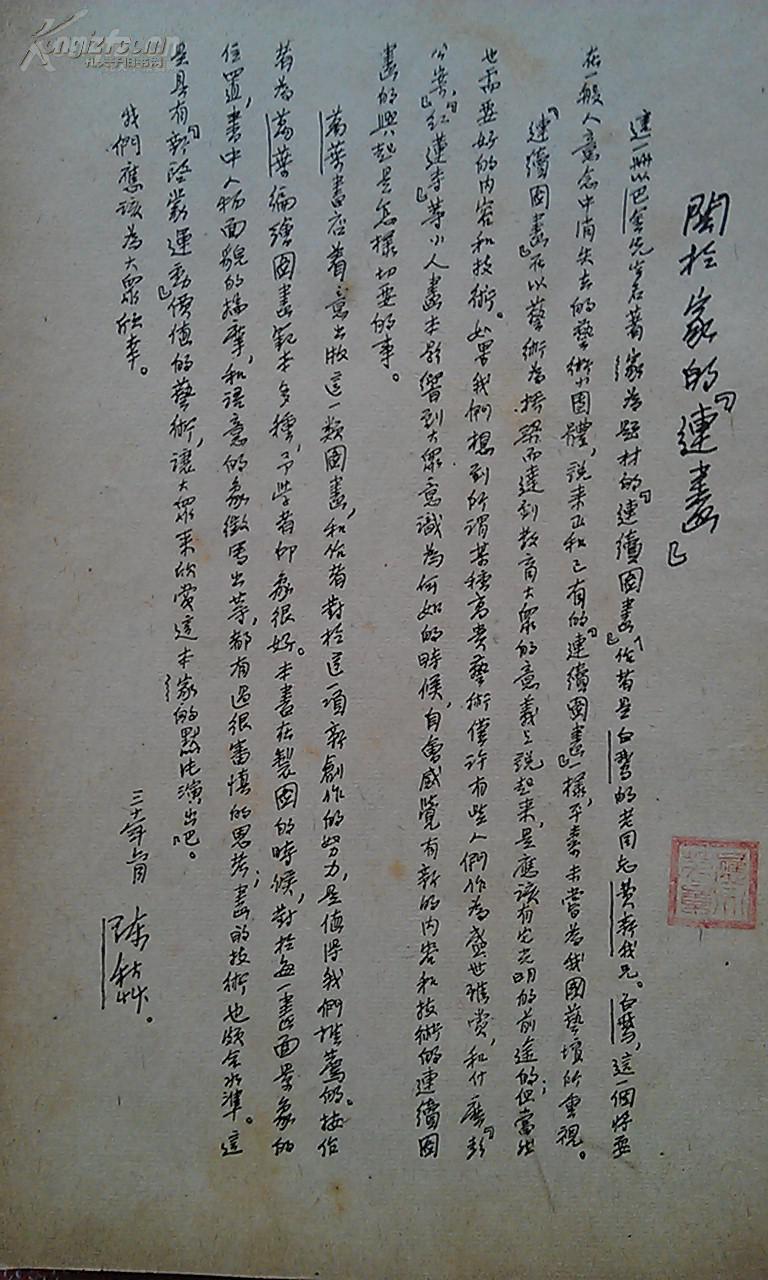 關於家的「連畫」
這一冊以巴金先生名著家為題材的「連續圖畫」作者是白鵞的老同志費新我兄。白鵞，這一個將要
在一般人意念中消失去的藝術小團體，說來正和已有的「連續圖畫」一樣，平素未嘗為我國藝壇所重視。
「連續圖畫」在以藝術為橋梁而達到教育大眾的意義上說起來，是應該有它光明的前途的；但當然
也需要好的內容和技術。如果我們想到所謂某種高貴藝術僅許有些人們作為盛世雅賞，和什麼「彭
公案」，「紅蓮寺」等小人畫本影響到大眾意識為何如的時候，自會感覺有新的內容和技術的連續圖
畫的興起是怎樣切要的事。
萬葉書店着意出版這一類圖畫，和作者對於這一項新創作的努力，是值得我們推薦的。按作
者為萬葉編繪圖畫範本多種，予學者印象很好。本書在製圖的時候，對於每一畫面景象的
位置，書中人物面貌的揣摩，和語意的象徵寫出等，都有過很審慎的思考；畫的技術也頗合水準。這
是具有「新啓蒙運動」價值的藝術，讓大眾來欣賞這本家的默片演出吧。
我們應該為大眾欣幸。
三十年 月 陳秋草。
Kongfz.com
孔夫子旧书网